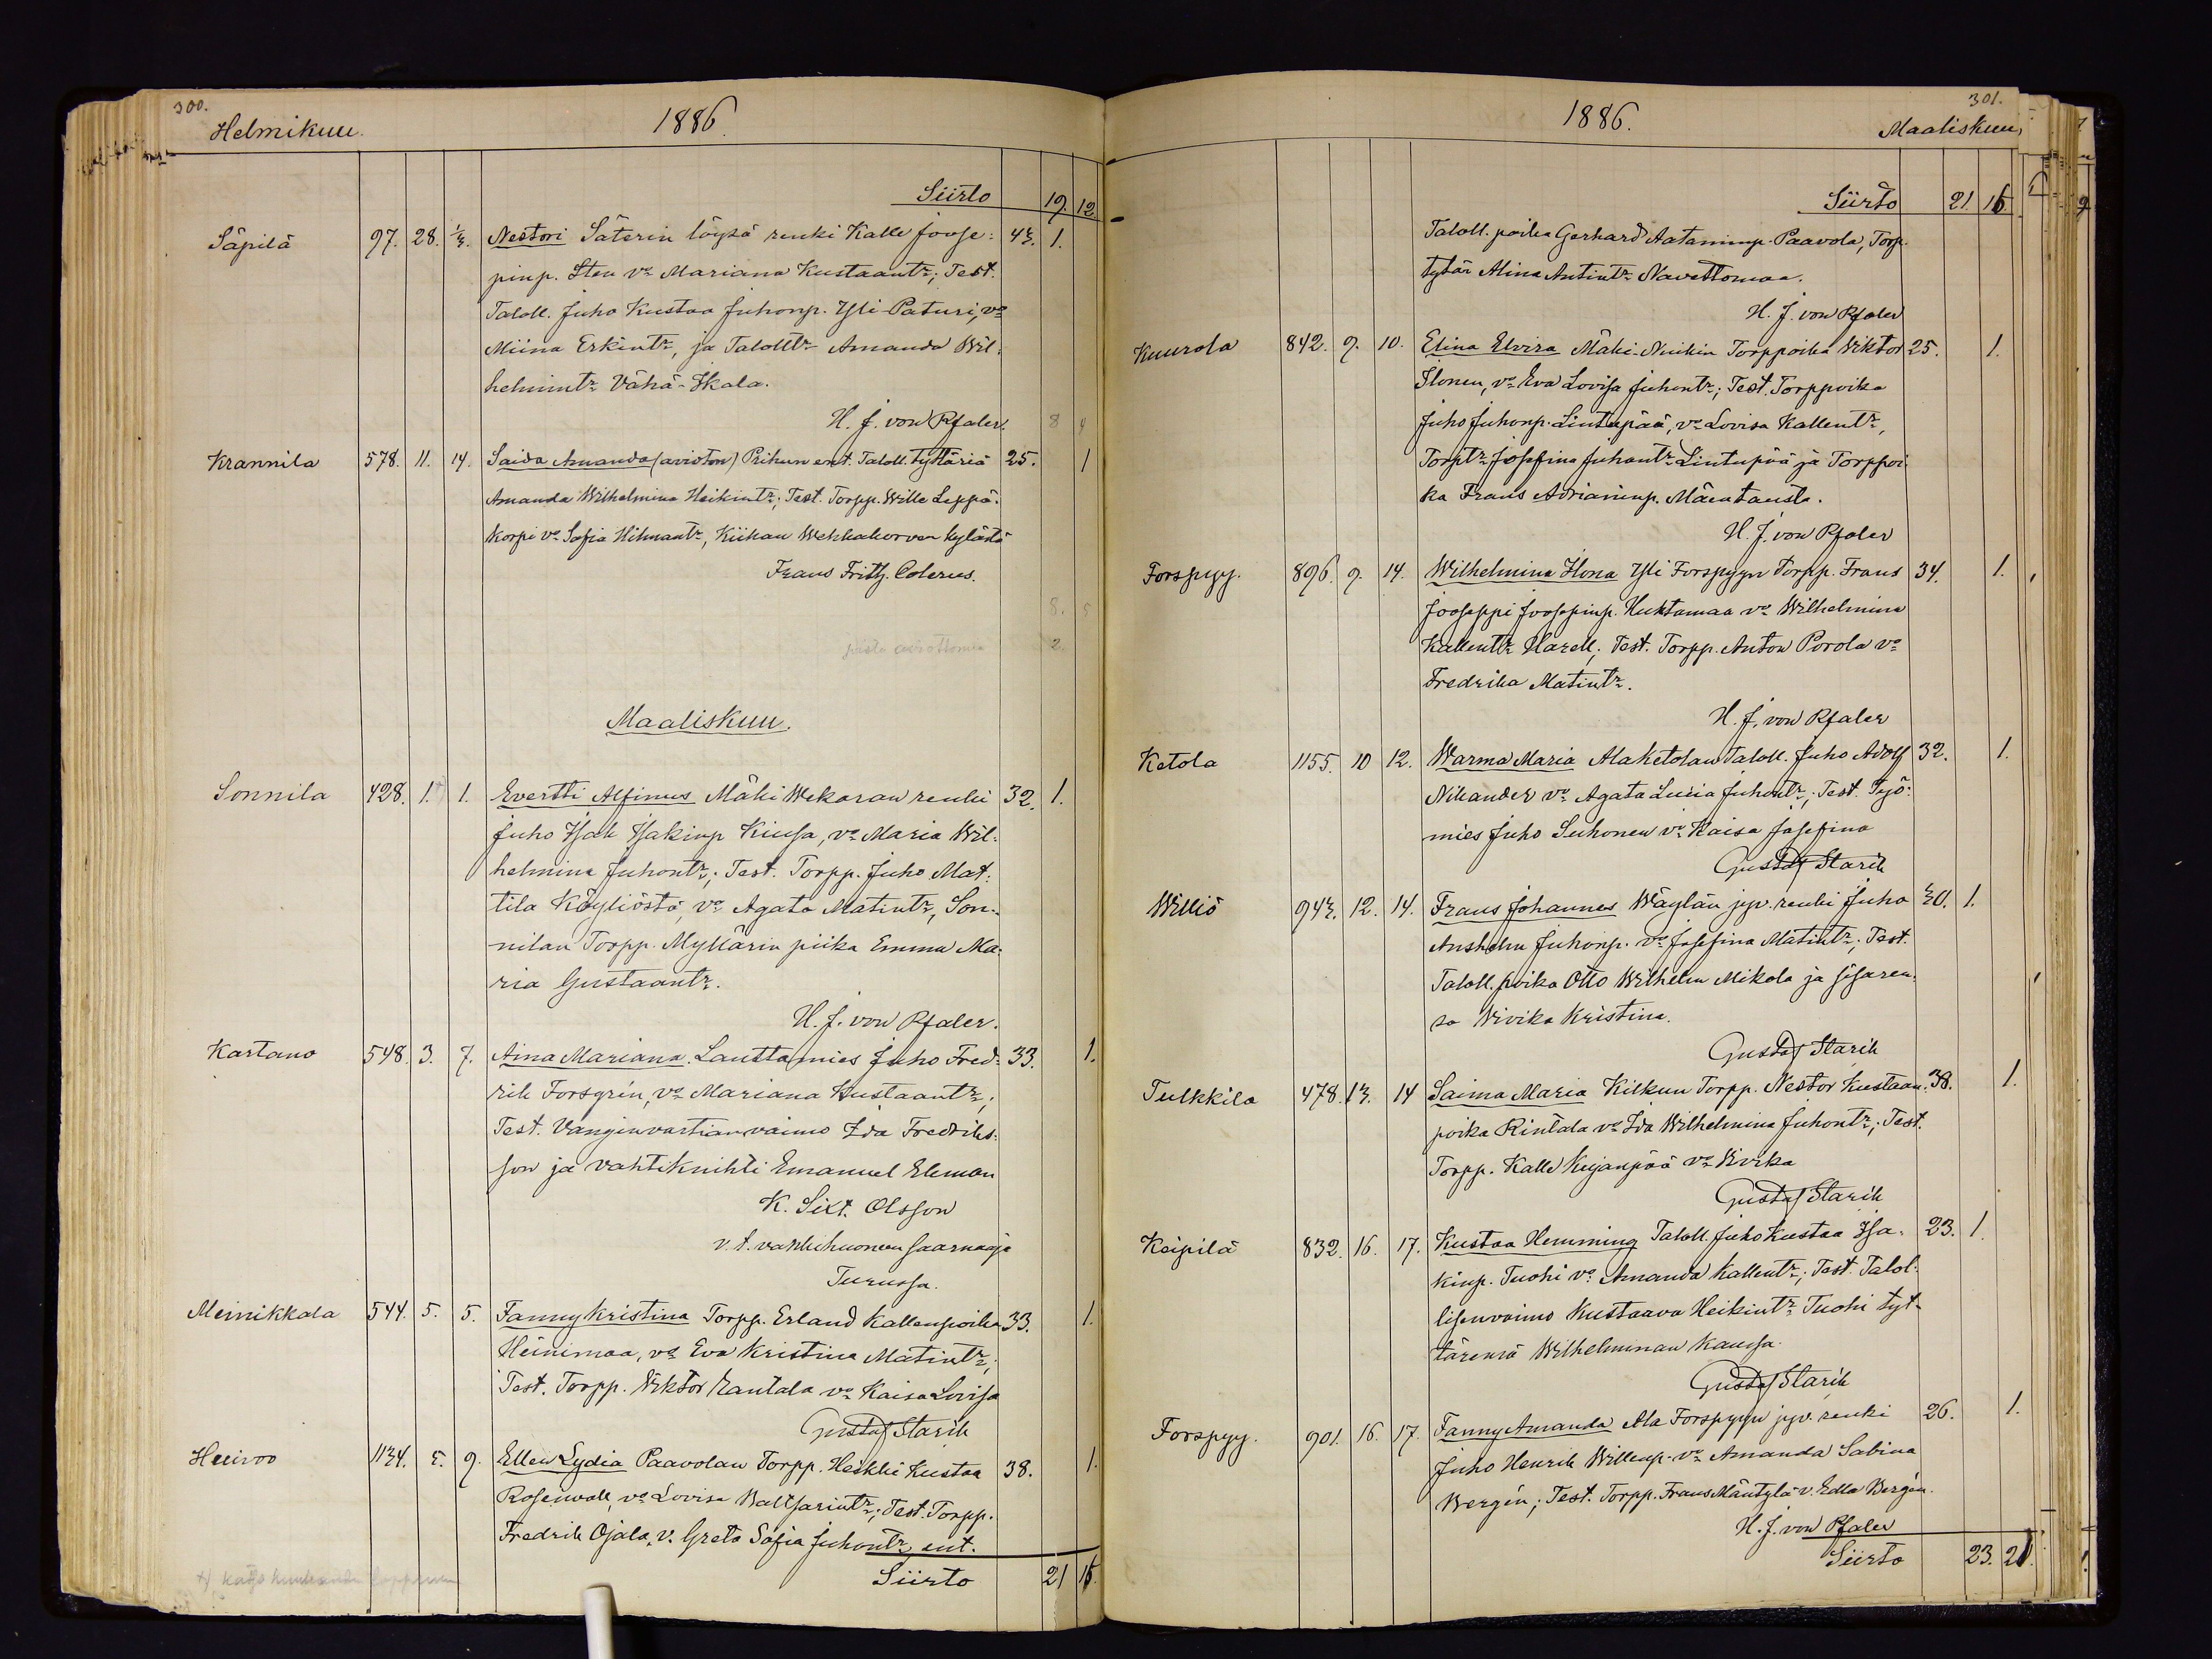 300.
Helmikuu.
1886.
Siirto 19. 12.
Säpilä 97. 28. 1/3. Nestori Säterin löysä renki Kalle Joose: 43. 1.
pinp. Sten vo Mariana Kustaantr; Test.
Taloll. Juho Kustaa Juhonp. Yli-Paturi, vo
Miina Erkintr, ja Talolltr Amanda Wil-
helmintr Vähä-Ikala.
H. J. von Pfaler. 8 4
Krannila 578. 11. 14. Saida Amanda (avioton) Prihun ent. Taloll. tyttäriä 25. 1
Amanda Wilhelmina Heikintr; Test. Torpp. Wille Leppä-
korpi vo Sofia Hihnantr, Kiikan Wehkakorven kylästä
Frans Frith. Colerus.
8. 5
2.
Maaliskuu.
Sonnila 428. 1. 1. Evertti Alfinus Mäki Wekaran renki 32. 1.
Juho Isak Isakinp Kiusa, vo Maria Wil-
helmina Juhontr; Test. Torpp. Juho Mat-
tila Köyliöstä, vo Agata Matintr, Son-
nilan Torpp. Myllärin piika Emma Ma-
ria Gustaantr.
H. J. von Pfaler.
Kartano 548. 3. 7. Aina Mariana. Lauttamies Juho Fred- 33. 1.
rik Forsgrén, vo Mariana Kustaantr;
Test. Vanginvartian vaimo Ida Fredriks-
son ja vahtiknihti Emanuel Ekman
K. Sixt. Olsson
v. t. vankihuoneen saarnaaja
Turussa.
Meinikkala 544. 5. 5. Fanny Kristina Torpp. Erland Kallenpoika 33. 1.
Heinimaa, vo Eva Kristina Matintr;
Test. Torpp. Viktor Rantala vo Kaisa Lovisa
Gustaf Starik
Heinoo 1134. 5. 9. Ellen Lydia Paavolan Torpp. Heikki Kustaa 38. 1.
Rosenvall, vo Lovisa Baltsarintr; Test. Torpp.
Fredrik Ojala, v. Greta Sofia Juhontr ent.
Siirto 21 15.
301.
1886.
Maaliskuu,
Siirto 21. 15.
Taloll. poika Gerhard Aataminp. Paavola, Torp.
tytär Alina Antintr Navettomaa.
H. J. von Pfaler
Kuurola 842. 9. 10. Elina Elvira Mäki-Nuikin Torppoika Viktor 25. 1.
Ilonen, vo Eva Lovisa Juhontr; Test. Torppoika
Juho Juhonp. Lintupää, vo Lovisa Kallentr,
Torptr Josefina Juhontr Lintupää ja Torppoi
ka Frans Adrianinp. Mäentausta.
H. J. von Pfaler
Forspyy. 896. 9. 14. Wilhelmina Ilona Yli Forspyyn Torpp. Frans 34. 1.
Jooseppi Joosepinp. Huhtamaa vo Wilhelmina
Kallentr Harell; Test. Torpp. Anton Porola vo
Fredrika Matintr.
H. J. von Pfaler
Ketola 1155. 10 12. Warma Maria Alaketolan Taloll. Juho Adolf 32. 1.
Nikander vo Agata Lucia Juhontr; Test. Työ-
mies Juho Suhonen vo Kaisa Josefina
Gustaf Starik
Williö 943. 12. 14. Frans Johannes Wäylän jyv. renki Juho 30. 1.
Anshelm Juhonp. vo Josefina Matintr; Test.
Taloll. poika Otto Wilhelm Mikola ja sisaren-
sa Vivika Kristina.
Gustaf Starik
Tulkkila 478. 13. 14 Saima Maria Kilkun Torpp. Nestor Kustaan- 38. 1.
poika Rintala vo Ida Wilhelmina Juhontr; Test.
Torpp. Kalle Kujanpää vo Vivika
Gustaf Starik
Keipilä 832. 16. 17. Kustaa Hemming Taloll. Juho Kustaa Isa- 23. 1.
kinp. Tuohi vo Amanda Kallentr; Test. Talol-
lisenvaimo Kustaava Heikintr Tuohi tyt-
tärensä Wilhelminan kanssa.
Gustaf Starik
Forspyy. 901. 16. 17. Fanny Amanda Ala Forspyyn jyv. renki 26. 1.
Juho Henrik Willenp. vo Amanda Sabina
Bergén; Test. Torpp. Frans Mäntylä v. Edla Bergén.
H. J. von Pfaler
Siirto 23. 21.